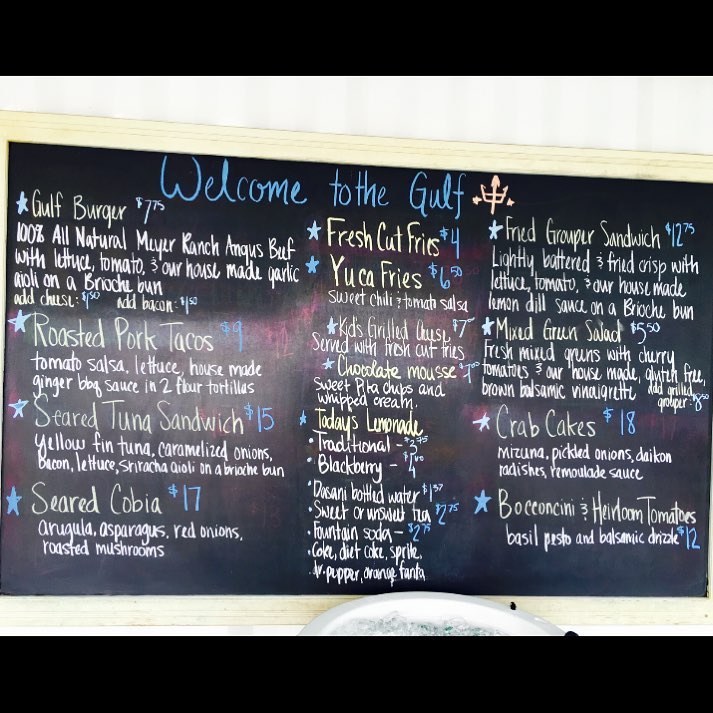 Welcome to the Gulf
Gulf Burger $7.75
100% All Natural Meyer Ranch Angus Beef
with lettuce, tomato, & our house made garlic
aioli on a Brioche bun
add cheese: $.50 add bacon: $1.50
Roasted Pork Tacos $9
tomato salsa, lettuce, house made
ginger bbq sauce in 2 flour tortillas
Seared Tuna Sandwich $15
yellow fin tuna, caramelized onions,
Bacon, lettuce, sriracha aioli on a brioche bun
Seared Cobia $17
arugula, asparagus, red onions,
roasted mushrooms
Fresh Cut Fries $4
Yuca Fries $6.50
sweet chili & tomato salsa
Kid's Grilled Cheese $7
Served with fresh cut fries
Chocolate mousse
Sweet Pita chips and
whipped cream.
Today's Lemonade
• Traditional - $3.75
• Blackberry - $4
• Dasani bottled water
• Sweet or unsweet tea $2.75
• Fountain soda - $2.75
• Coke, diet coke, sprite,
dr. pepper, orange fanta
Fried Grouper Sandwich $12.75
Lightly battered & fried crisp with
lettuce, tomato, & our house made
lemon dill sauce on a Brioche bun
Mixed Green Salad $5.50
Fresh mixed greens with cherry
tomatoes & our house made, gluten free,
brown balsamic vinaigrette add grilled
grouper: $8.50
Crab Cakes $18
mizuna, pickled onions, daikon
radishes, remoulade sauce
Bocconcini & Heirloom Tomatoes
basil pesto and balsamic drizzle $12